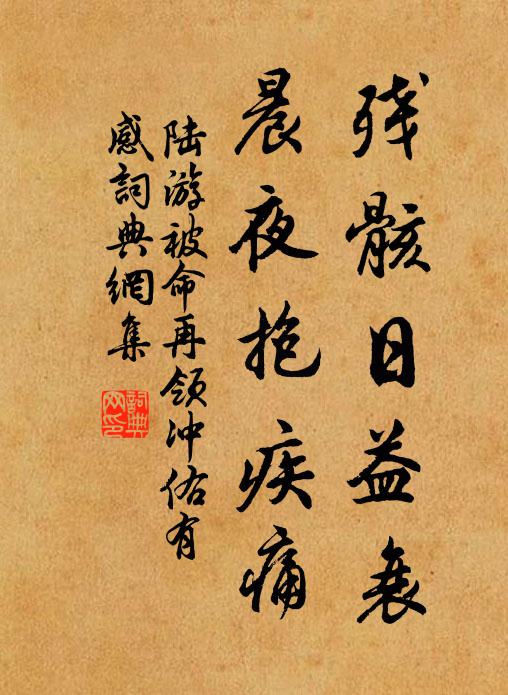 残骸日益衰
晨夜抱疾痛
陆游被命再领冲佑有
感詞典網集
詞典网印